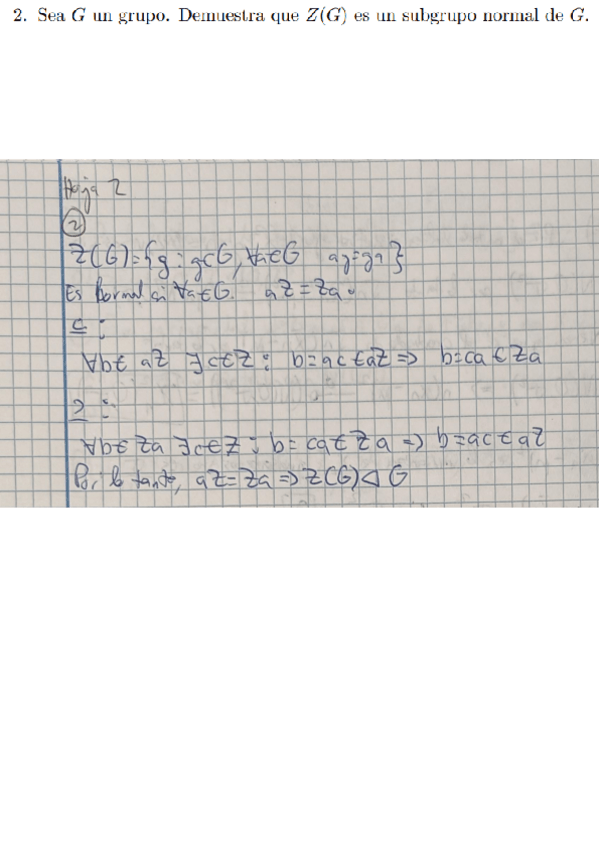 2. Sea G un grupo. Demuestra que Z(G) es un subgrupo normal de G.
Hoja 2
②
Z(G)={g : g∈G, ∀a∈G ag=ga}
Es normal si ∀a∈G. aZ=Za.
⊆:
∀b∈ aZ ∃c∈Z : b=ac∈aZ => b=ca∈Za
⊇:
∀b∈Za ∃c∈Z : b=ca∈Za => b=ac∈aZ
Por lo tanto, aZ=Za => Z(G)⊲G